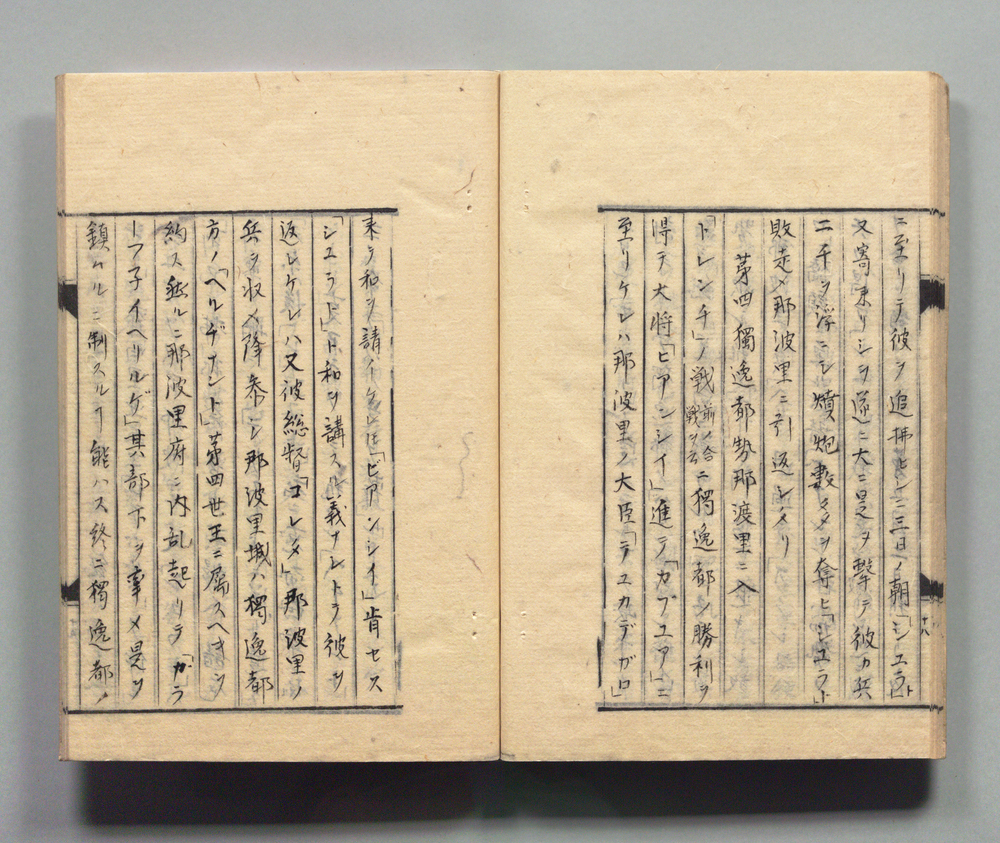 ニ至リテ彼ヲ追拂ヒシニ三日ノ朝「シユラト」
又寄来リシヲ遂ニ大ニ是ヲ撃テ彼カ兵
二千ヲ浮ニシ燌炮數タヲ奪ヒ「シユラト」
敗走〆那波里ニ引返シタリ
第四獨逸都勢那渡里ニ入
「トレンチ」ノ戦前ノ合戦ヲ云ニ獨逸都ン勝利ヲ
得テ大将「ビアンシイ」進テ「カプユア」ニ
至リケレハ那波里ノ大臣「テユカデガロ」
来テ和ヲ請イケレ𪜈「ビアンシイ」肯セス
「シユラト」ト和ヲ講スル義ナシトテ彼ヲ
返シケレハ又彼総督「コレタ」那波里ノ
兵ヲ収〆降参シ那波里城ハ獨逸都
方ノ「ヘルヂナント」第四世王ニ属スヘキヲ
約ス然ルニ那波里府ニ内乱起リテ「カラ
ーフ子イヘリルゲ」其部下ヲ率〆是ヲ
鎮ムルニ制スルヿ能ハス終ニ獨逸都ノ
十八